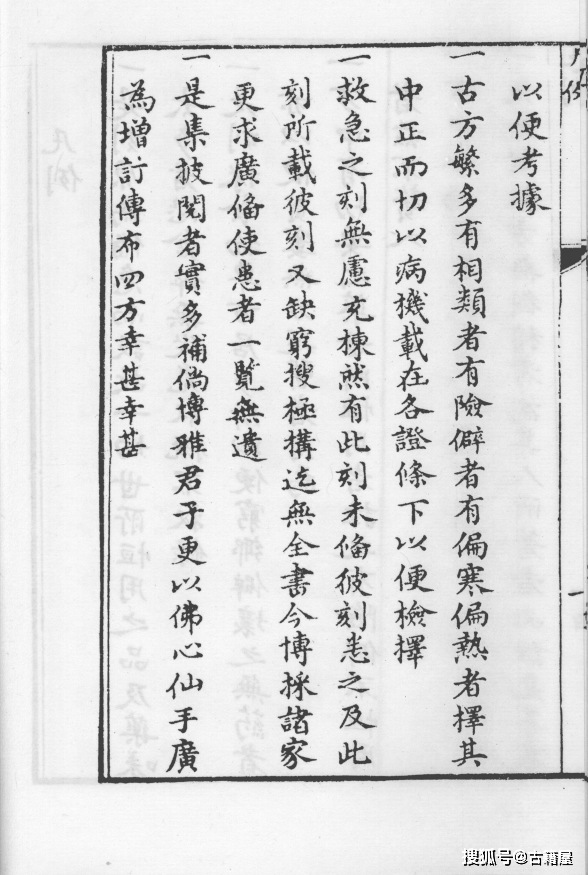 以便考據
一古方繁多有相類者有險僻者有偏寒偏熱者擇其
中正而切以病機載在各證條下以便檢擇
一救急之刻無慮充棟然有此刻未俻彼刻悉之及此
刻所載彼刻又缺窮搜極搆迄無全書今博採諸家
更求廣俻使患者一覽無遺
一是集披閱者實多補倘博雅君子更以佛心仙手廣
為增訂傳布四方幸甚幸甚
凡例
一
搜狐号@古籍屋